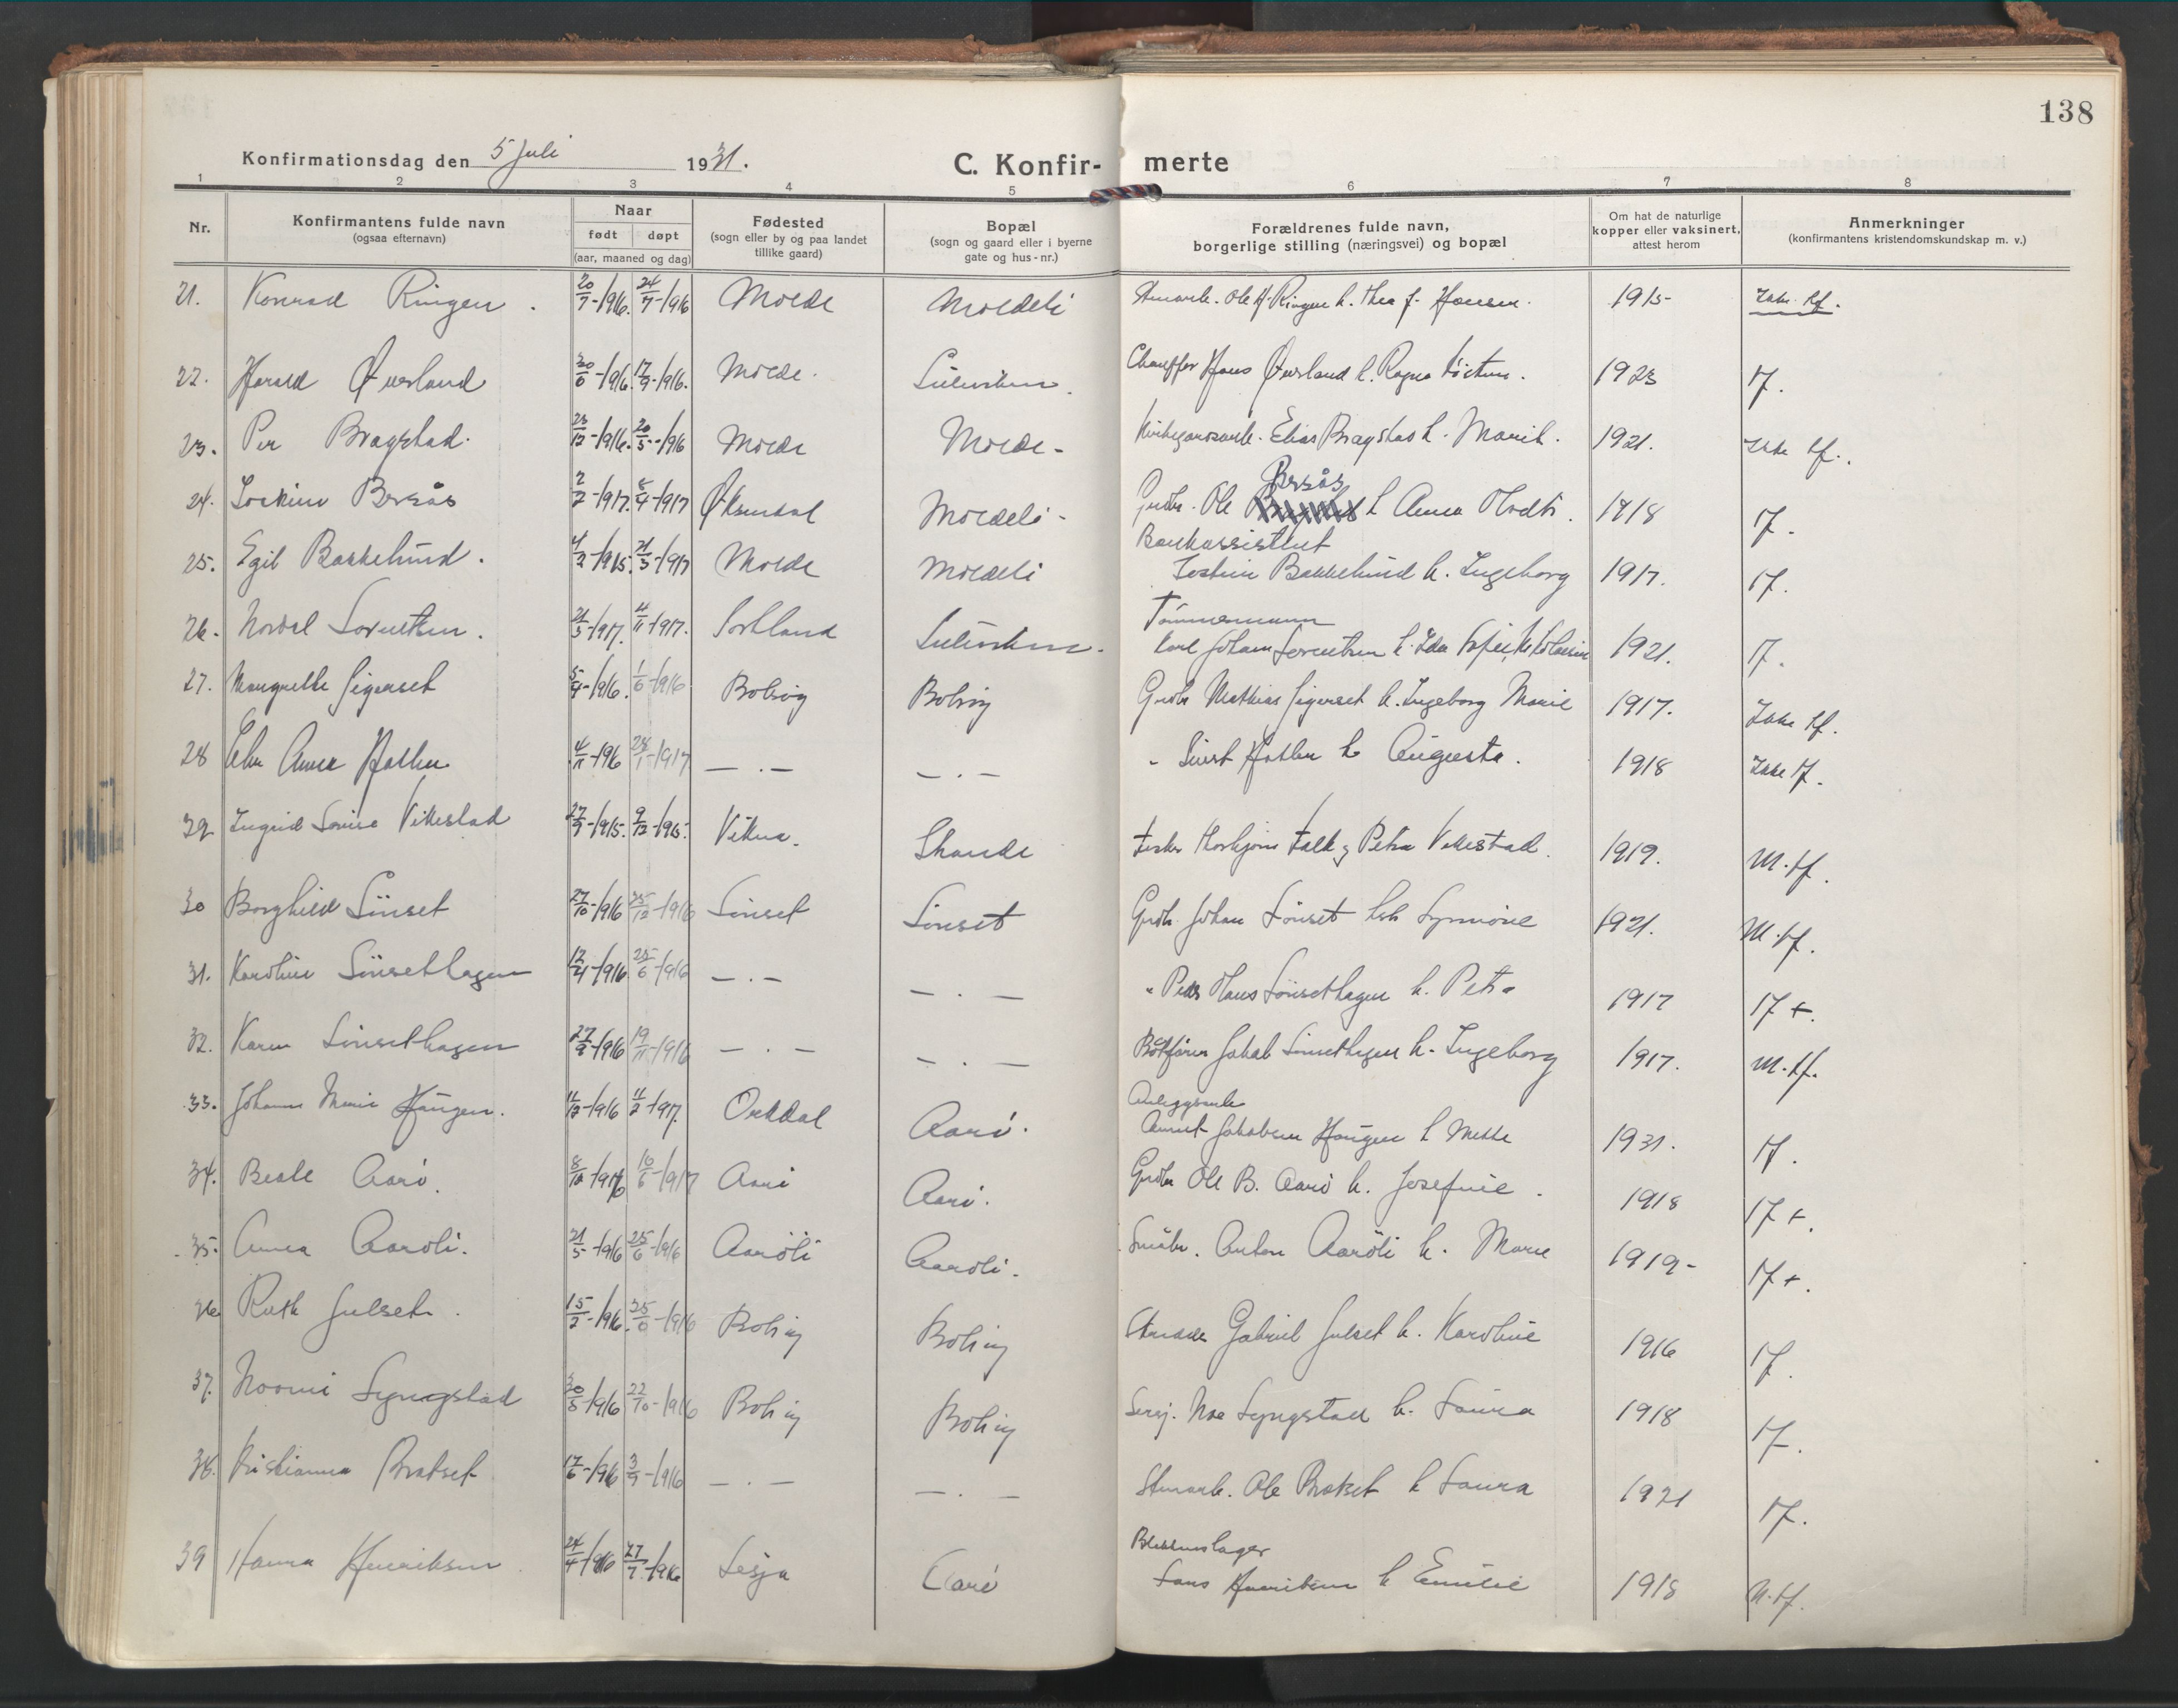 138
Konfirmationsdag den 5 Juli 1931.
C. Konfirmerte
1 2 3 4 5 6 7 8
Nr.
Konfirmantens fulde navn
(ogsaa efternavn)
Naar
født døpt
(aar, maaned og dag)
Fødested
(sogn eller by og paa landet
tillike gaard)
Bopæl
(sogn og gaard eller i byerne
gate og hus-nr.)
Forældrenes fulde navn,
borgerlige stilling (næringsvei) og bopæl
Om hat de naturlige
kopper eller vaksinert,
attest herom
Anmerkninger
(konfirmantens kristendomskundskap m. v.)
21. Konrad Ringen. 20/7-1916. 24/7-1916 Molde Moldeli Ole H. Ringen h. Thea J. Hansen. 1915 Ikke tf.
22. Harald Øverland 30/6-1916. 17/9-1916. Molde. Chauffør Hans Øverland h. Ragna 1923 tf.
23. Per Bragstad. 23/12-1916. 20/5-1916 Molde Molde- Elias Bragstad h. Marit. 1921. Ikke tf.
Bersås
24. Bersås 2/2-1917. 8/4-1917 Øksendal Moldeli- Ole h Anna 1918 tf.
Bankassistent
25. Egil Bakkelund. 4/2-1915. 21/3-1917 Molde Moldeli Bakkelund h. Ingeborg 1917. tf.
Tömmermann
26. Norval Sorentsen. 21/3-1917. 4/11-1917. Sortland Karl Johan Sorentsen h. Ida 1921. tf.
27. Margrethe Gigerset 5/4-1916. 1/6-1916 Bolsöy Bolsöy Grdbr Mathias Gigerset h. Ingeborg Marie 1917. Ikke tf.
28 Anna Hatlen 4/11-1916 28/1-1917 — . — — . — " Sivert Hatlen h Augusta. 1918 Ikke tf.
29 Ingrid Lovise Vikestad 27/9-1915. 9/12-1915. Vikna. Skaudi Fisker Torbjörn Falk og Petra Vikestad. 1919. M. tf.
30 Borghild Sönset 27/10-1916 25/12-1916 Sönset Sönset Grdbr. Johan Sönset h Synnöve 1921. M. tf.
31. Karoline Sönsethagen 12/4-1916 25/6-1916 — . — — . — " Peder Hans Sönsethagen h. Petra 1917 tf +.
32. Karen Sönsethagen 27/9-1916 19/11-1916 — . — — . — Båtfören Jakob Sönsethagen h. Ingeborg 1917. M. tf.
Anleggsarb
33. Johanna Marie Haugen. 11/12-1916 11/2-1917. Orkdal Aarö. Jakobsen Haugen h Mette 1931. tf.
34. Beate Aarö. 8/10-1916 10/6-1917 Aarö Aarö. Grdbr Ole B. Aarö h. Josefine. 1918 tf +.
35. Anna Aaröli. 21/5-1916 25/6-1916 Aaröli Aaröli. Småbr. Anton Aaröli h. Marie 1919- tf +.
36 Ruth Julset. 15/2-1916. 25/6-1916 Bolsöy Bolsöy Gabriel Julset h. Karoline 1916 tf.
37. Noomi Lyngstad 30/8-1916 22/10-1916 Bolsöy Bolsöy Sersj. Noa Lyngstad h. Laura 1918 tf.
38. Kristianna Bratset 17/6-1916 3/9-1916 — . — — . — Ole Bratset h Laura 1921 tf.
Blikkenslager
39 Hanna Henriksen 24/4-1916 27/7-1916 Lesja Aarö Lars Henriksen h Emilie 1918 M. tf.